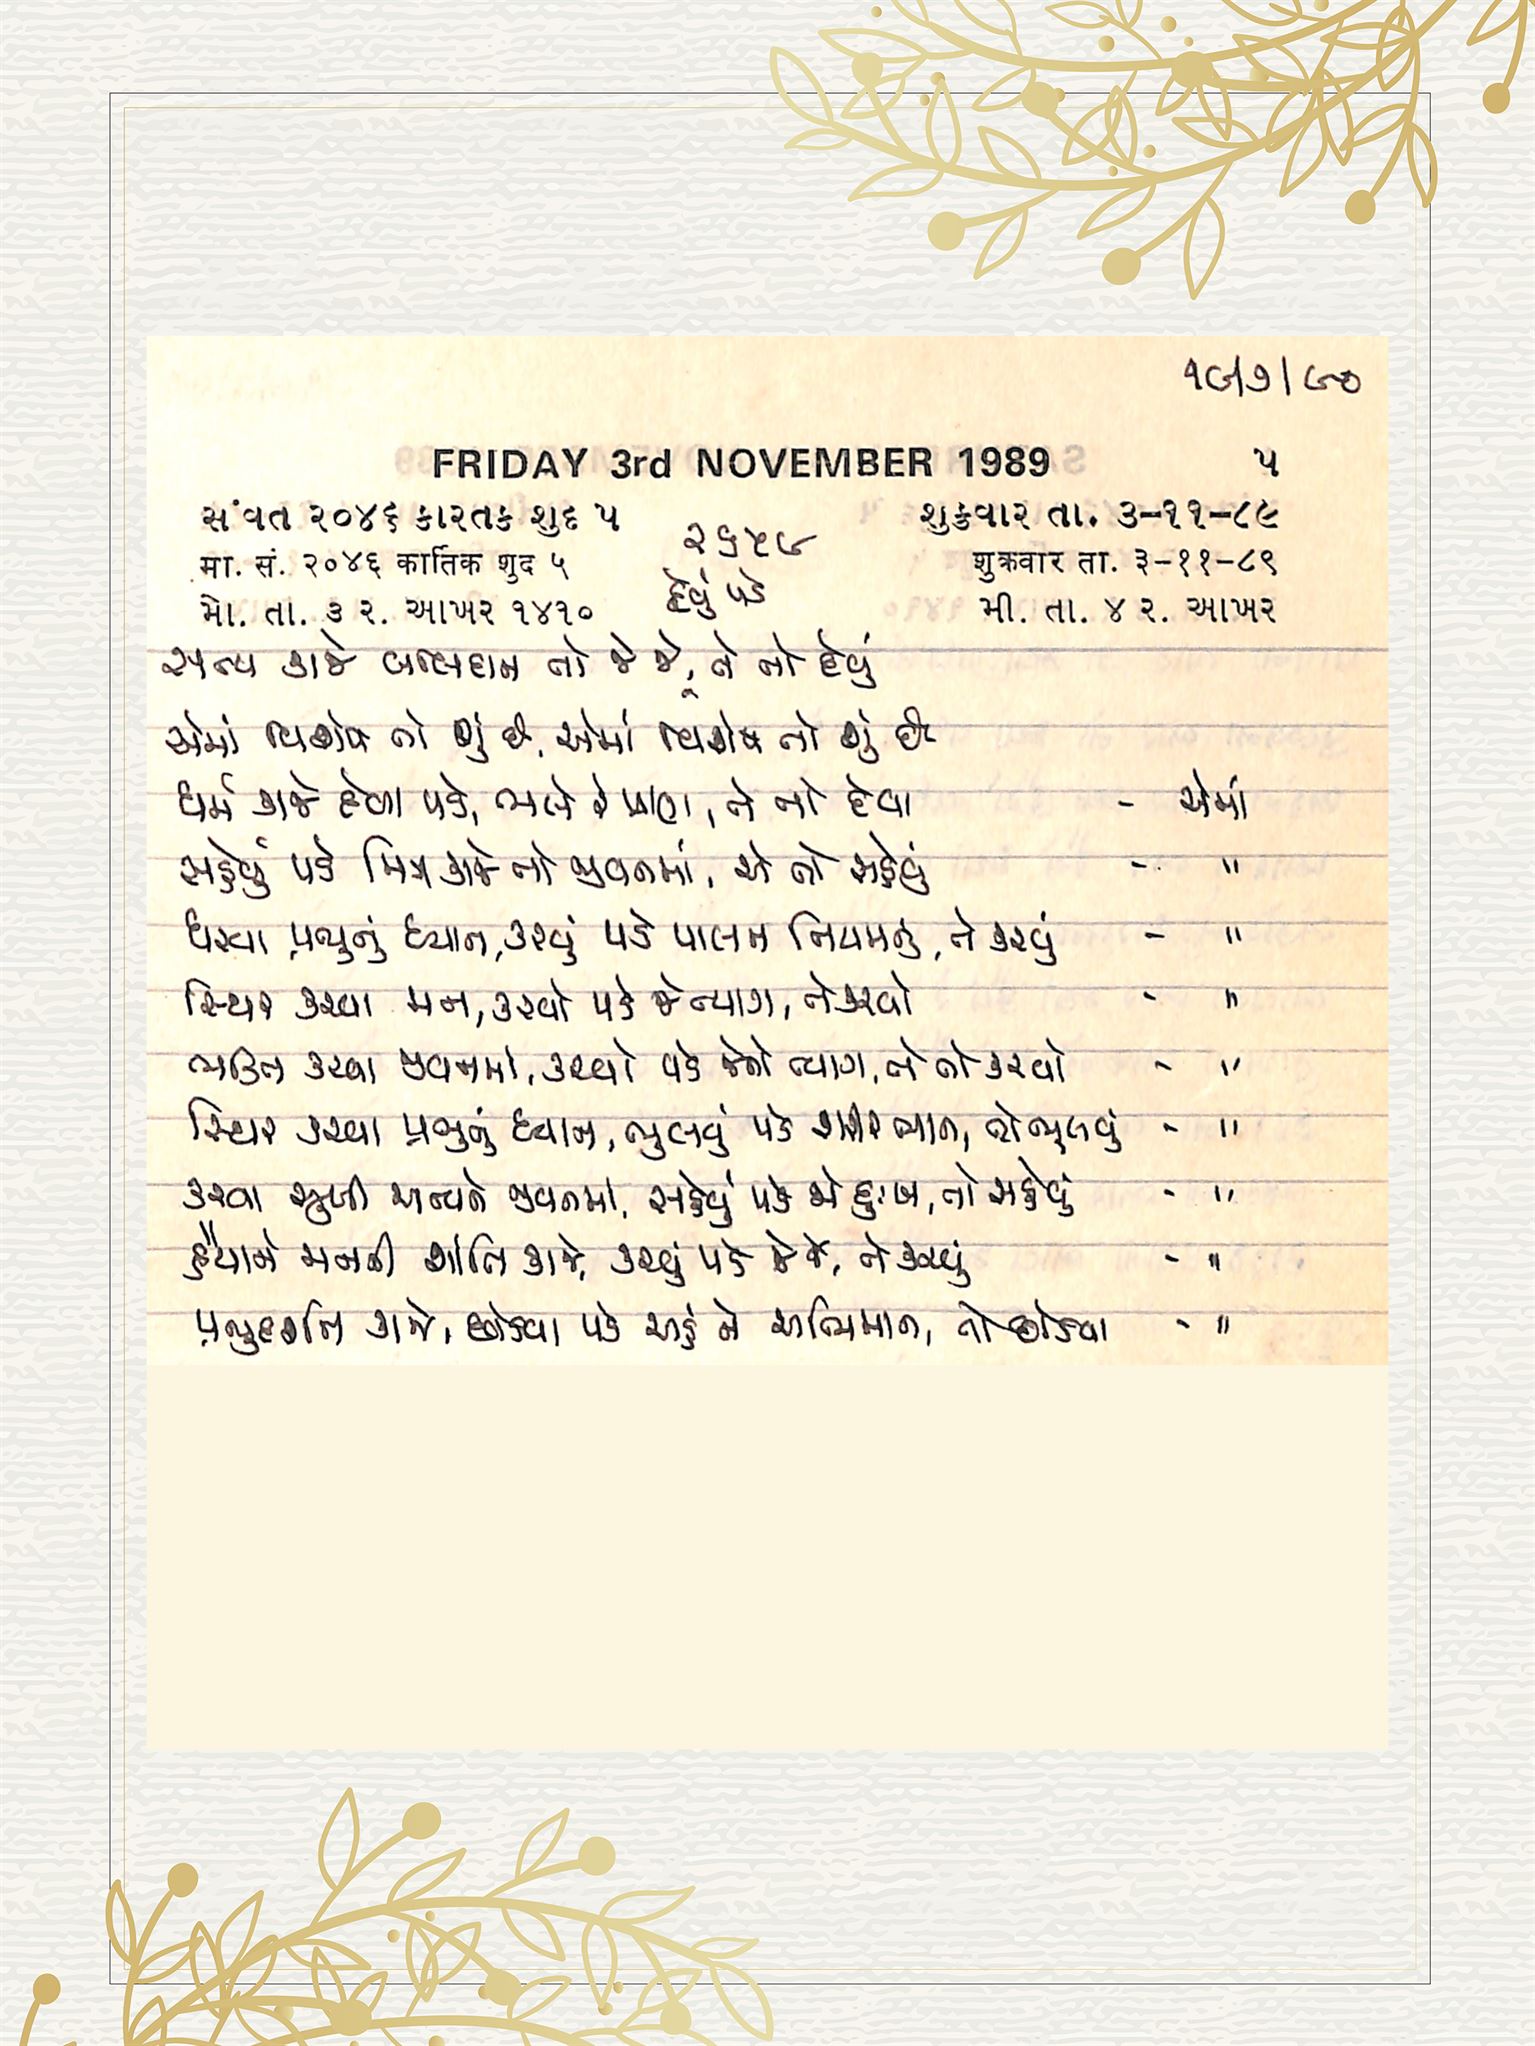 ૧૯/૭/૯૦
FRIDAY 3rd NOVEMBER 1989 ૫
સંવત ૨૦૪૬ કારતક શુદ ૫ શુક્રવાર તા. ૩-૧૧-૮૯
૨૬૫૯
मा. सं. २०४६ कार्तिक शुद ५ शुक्रवार ता. ३-११-८९
દેવું પડે
મો. તા. ૩ ર. આખર ૧૪૧૦ મી. તા. ૪ ર. આખર
સત્ય કાજે બલિદાન તો જે જે, તે તો દેવું
એમાં વિશેષ તો શું છે, એમાં વિશેષ તો શું છે
ધર્મ કાજે દેવા પડે, ભલે રે પ્રાણ, તે તો દેવા - એમાં
સહેવું પડે મિત્ર કાજે તો જીવનમાં, એ તો સહેવું - "
ધરવા પ્રભુનું ધ્યાન, કરવું પડે પાલન નિયમનું, તે કરવું - "
સ્થિર કરવા મન, કરવો પડે જે ત્યાગ, તે કરવો - "
ભક્તિ કરવા જીવનમાં, કરવો પડે જેનો ત્યાગ, તે તો કરવો - "
સ્થિર કરવા પ્રભુનું ધ્યાન, ભુલવું પડે શરીર ભાન, તો ભૂલવું - "
કરવા સુખી અન્યને જીવનમાં, સહેવું પડે જો દુઃખ, તો સહેવું - "
હૈયાને મનની શાંતિ કાજે, કરવું પડે જે જે, તે કરવું - "
પ્રભુદર્શન કાજે, છોડવા પડે અહં ને અભિમાન, તો છોડવા - "